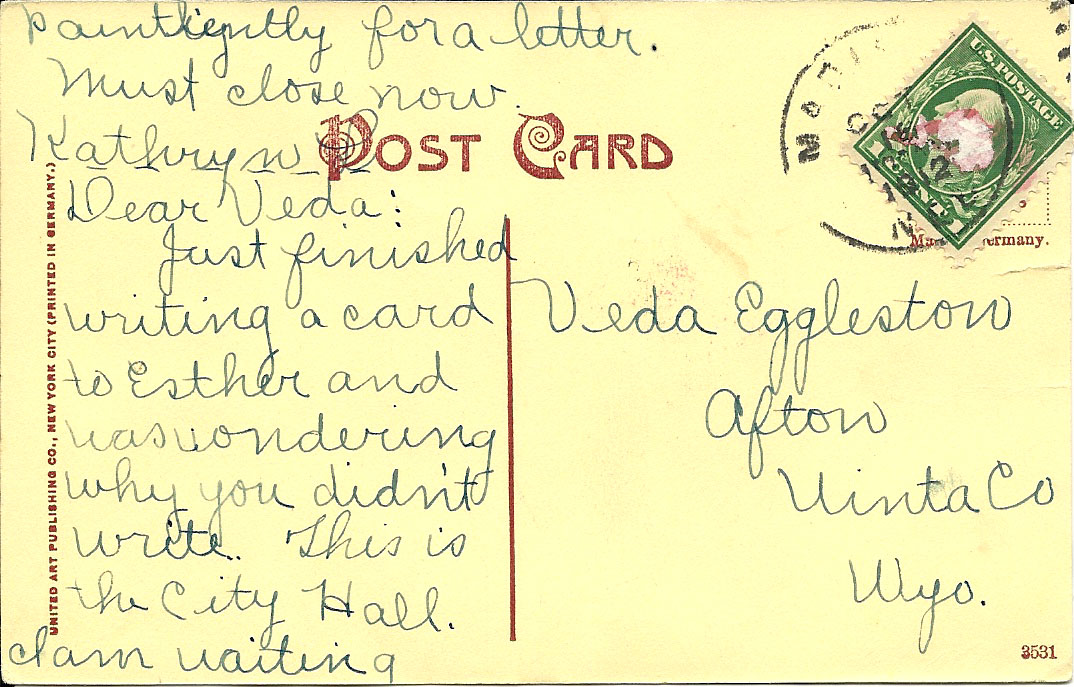 Dear Veda:
Just finished
writing a card
to Esther and
was wondering
why you didn't
write. This is
the City Hall.
I am waiting
paintiently for a letter.
Must close now.
Kathryn
POST CARD
UNITED ART PUBLISHING CO., NEW YORK CITY (PRINTED IN GERMANY.)
U.S. POSTAGE
1 CENT 1
Veda Eggleston
Afton
Uinta Co
Wyo.
3531